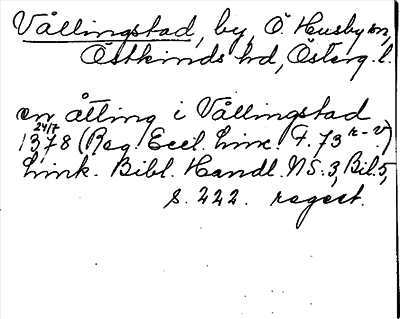 Vållingstad, by, Ö. Husby sn,
Östkinds hd, Österg. l.
en åtting i Vållingstad
24/7
1378 (Reg. Eccl. Linc. F. 73 r-v)
Link. Bibl. Handl. NS. 3, Bil. 5,
s. 222. regest.